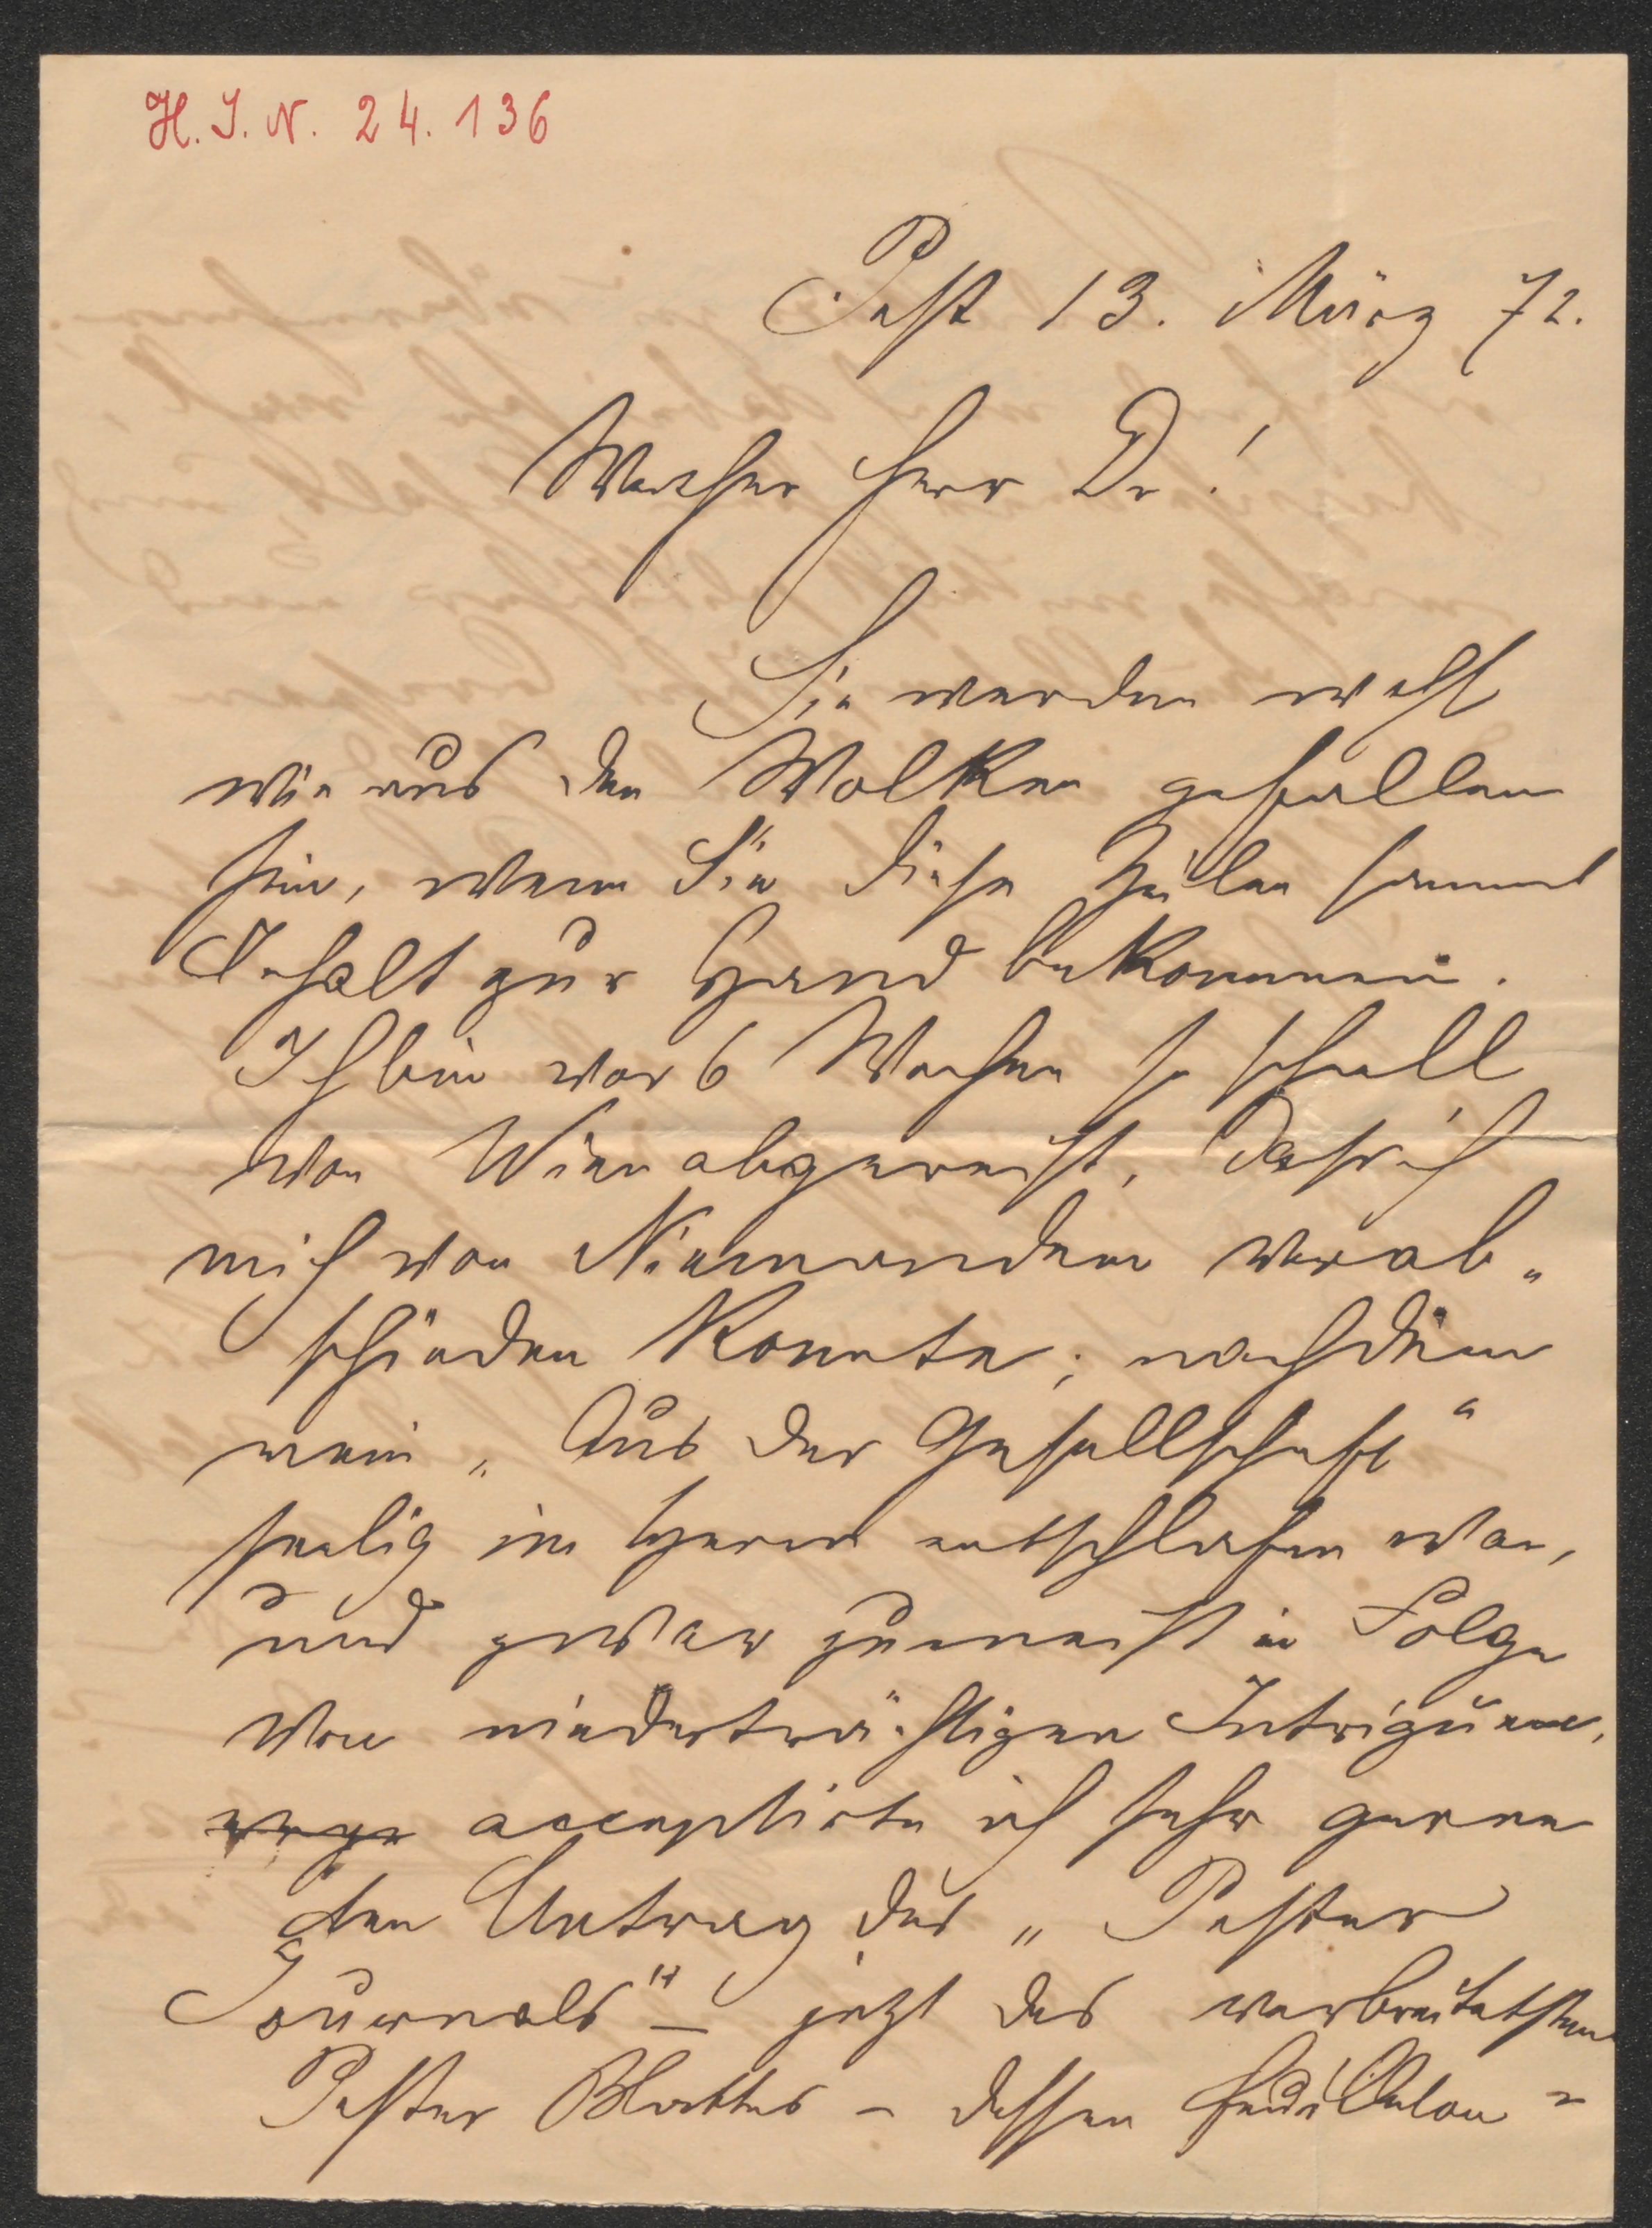 H. I. N. 24.136
Pest 13. März 72.
Werther Herr Dr!
Sie werden wohl
wie aus den Wolken gefallen
sein, wenn Sie diese Zeilen sammt
Inhalt zur Hand bekommen.
Ich bin vor 6 Wochen so schnell
von Wien abgereist, daß ich
mich von Niemandem verab„
schieden konnte; nachdem
mein „Aus der Gesellschaft“
seelig im Herrn entschlafen war,
und zwar zumeist in Folge
von niederträchtigen Intriguen,
acceptirte ich sehr gerne
den Antrag des „Pester
Journals“ – jetzt des verbreitetsten
Pester Blattes – dessen Feuilleton